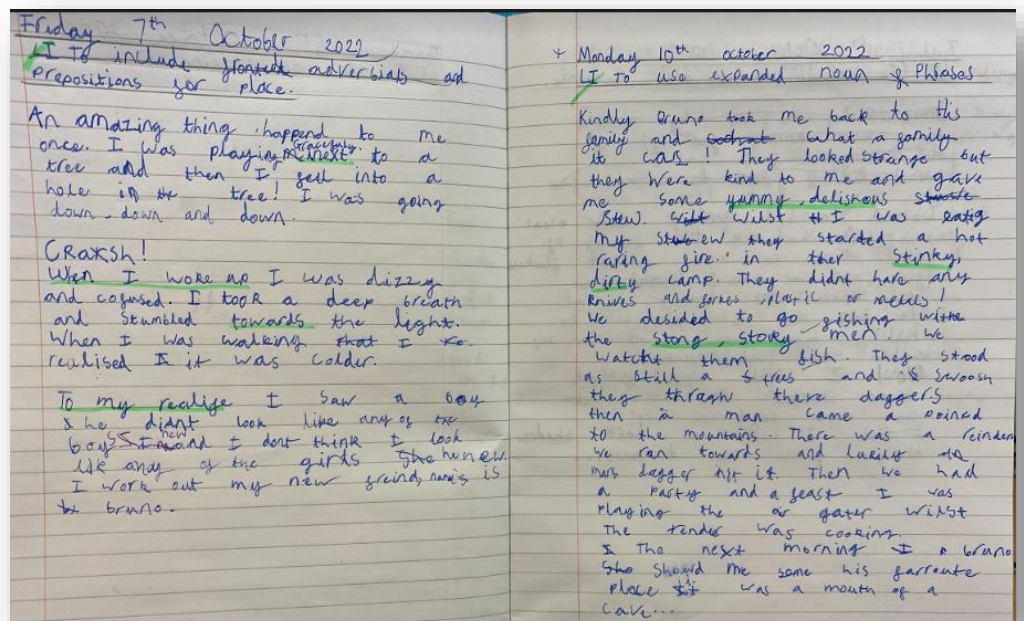 Friday 7th October 2022
LI To include fronted adverbials and
prepositions for place.
An amazing thing happend to me
once. I was playing Gracefully next to a
tree and then I fell into a
hole in the tree! I was going
down, down and down.
CRaksh!
When I woke up I was dizzy
and cofused. I took a deep breath
and stumbled towards the light.
When I was walking that I
realised it was colder.
To my realife I saw a boy
he didnt look like any of the
boys I new and I dont think I look
like any of the girls he knew.
I work out my new freind, name's is
bruno.
Monday 10th october 2022
LI To use expanded noun Phrases
Kindly Bruno took me back to this
family and what a family
it was! They looked strange but
they were kind to me and gave
me some yummy, delishous
stew. wilst I was eatig
my stew they started a hot
raring fire in ther stinky,
dirty camp. They didnt have any
knives and forkes plastic or metals!
We desided to go fishing with
the stong, stocky men. We
watcht them fish. They stood
as still a trees and swoosh
they thragh there daggers
then a man came a poined
to the mountains. There was a reinder
we ran towards and lukily
mans dagger hit it. Then we had
a party and a feast I was
playing the air gater wilst
The render was cooking.
The next morning bruno
showd me some his farroute
place it was a mouth of a
cave...